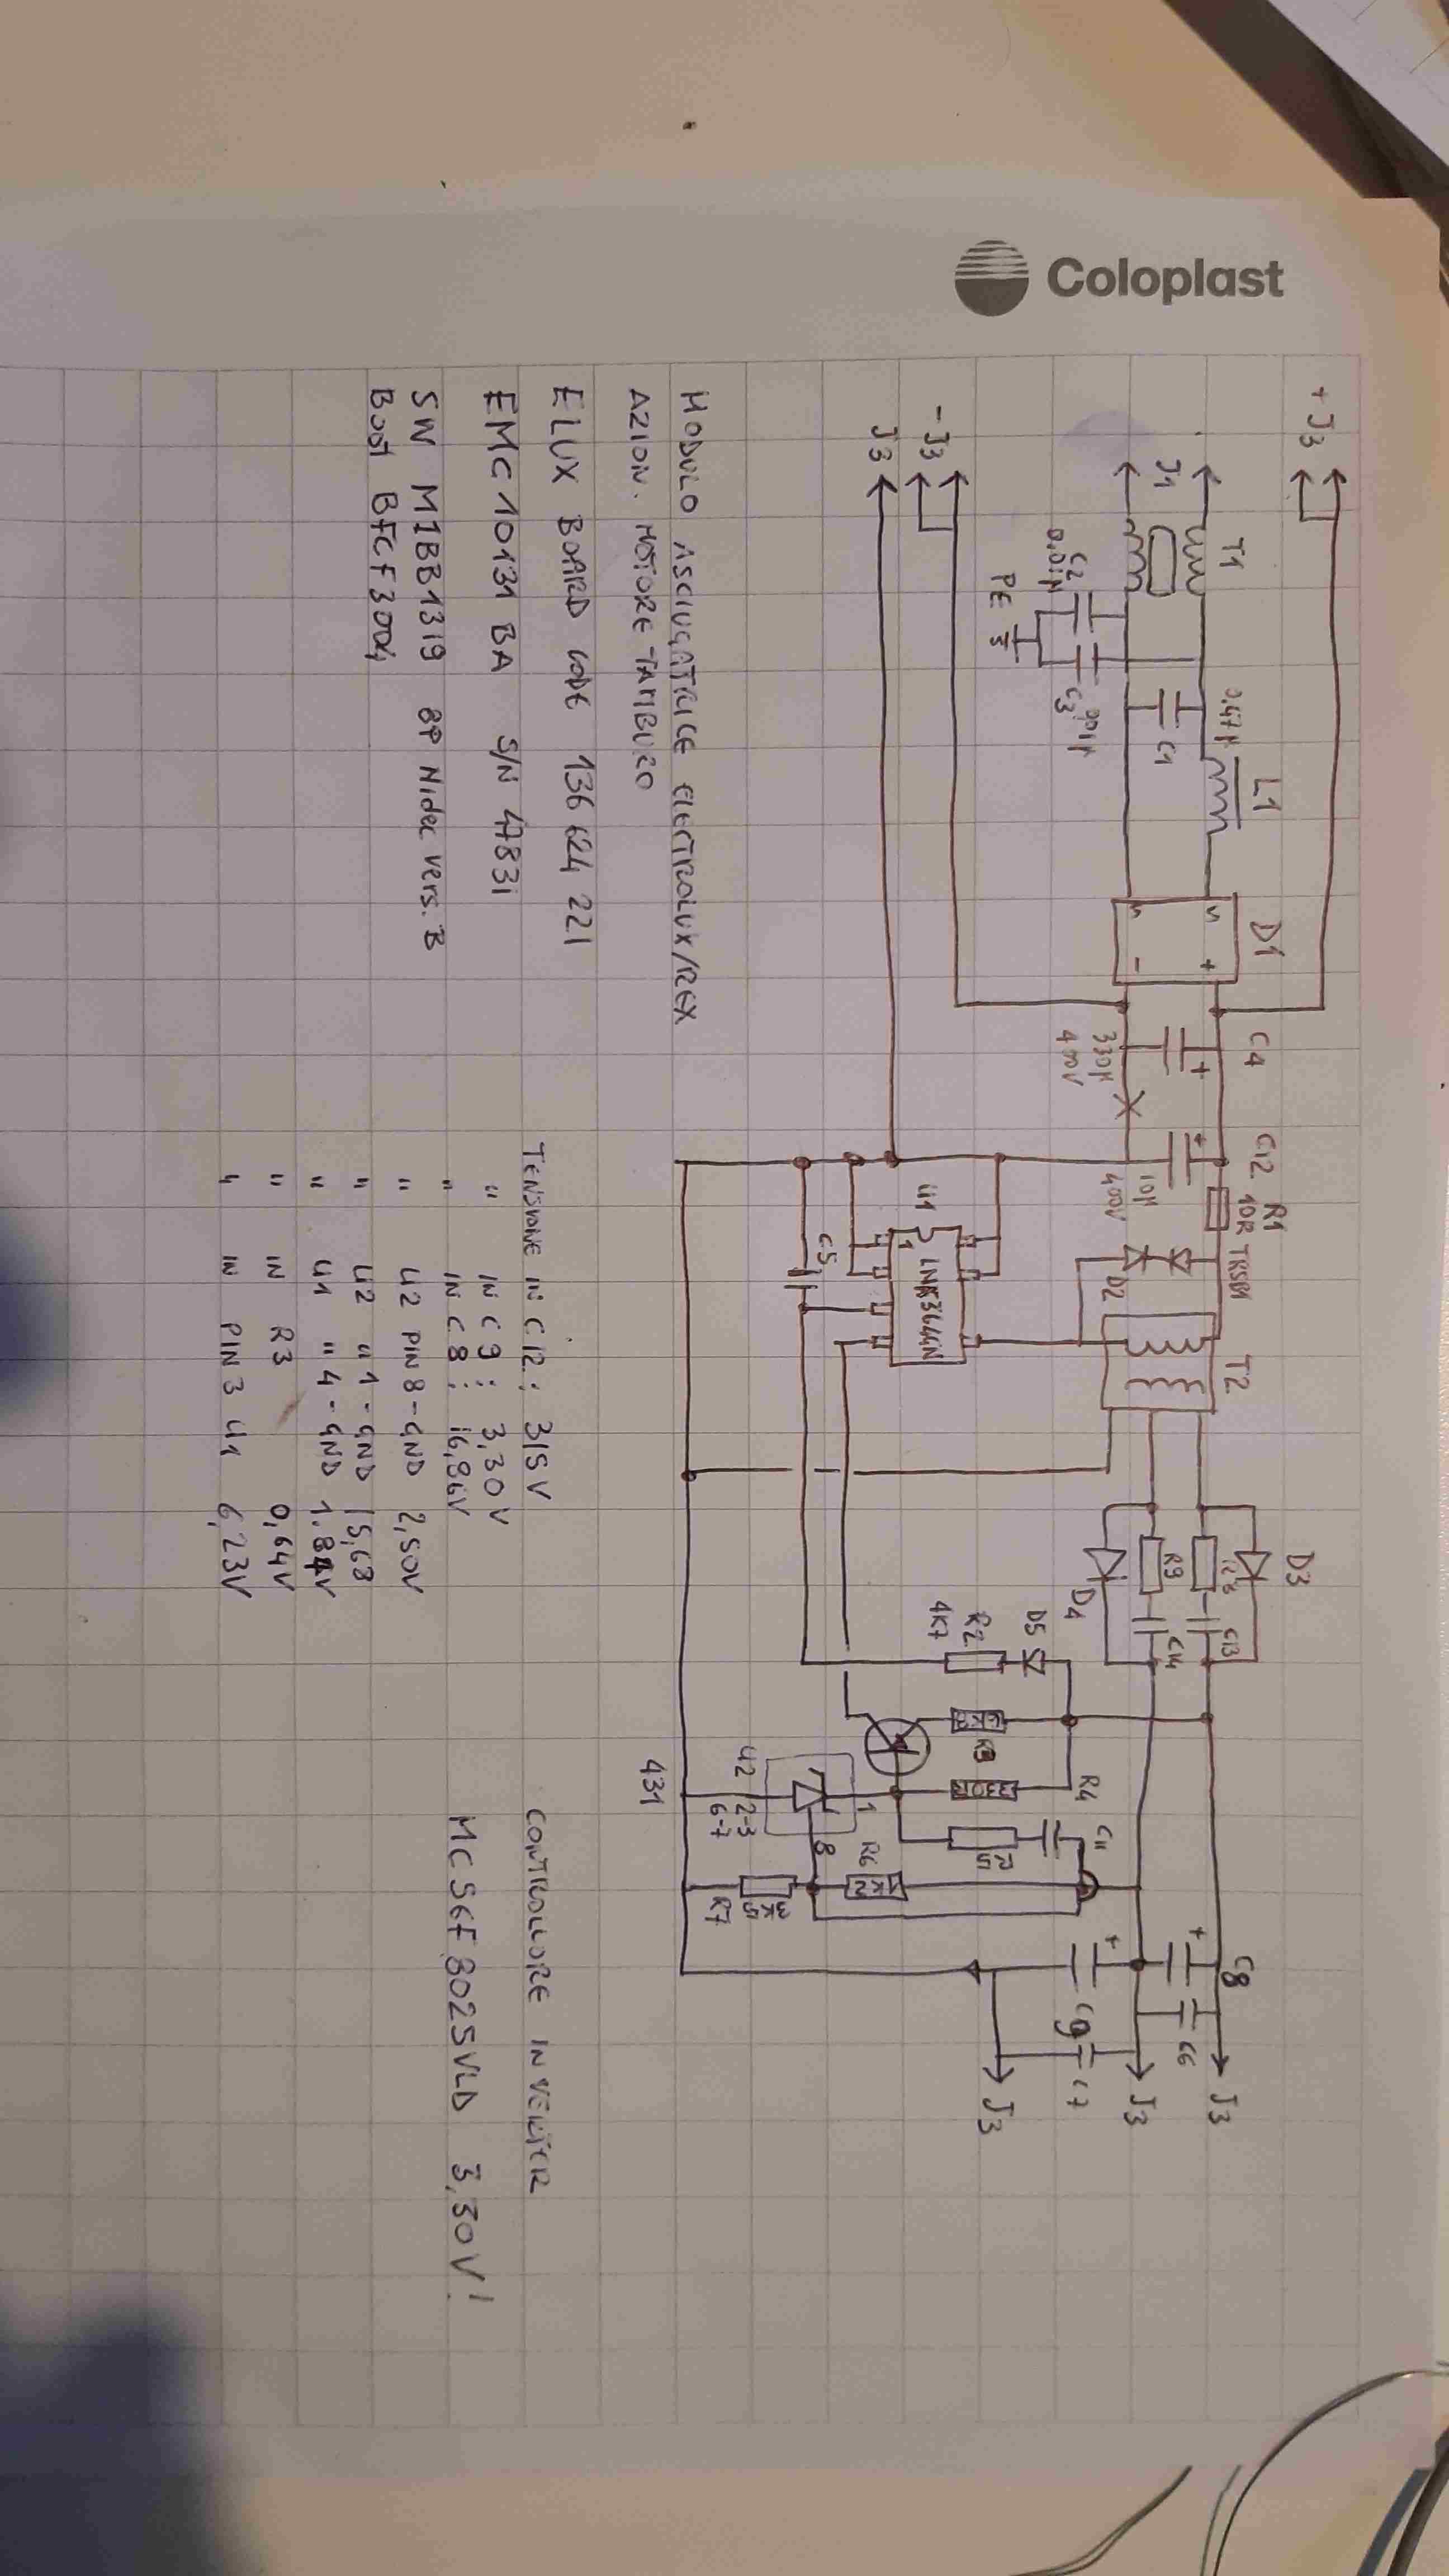 Coloplast
+J3
T1
L1
D1
C4
C12
R1
10R
TRSB1
T2
D3
J1
0,47µ
C1
330µ
400V
10µ
400V
D2
R9
C13
C14
D4
C2
0,01µ
C3
PE
-J3
J3
U1
1
LNK364GN
C5
D5
R2
4K7
R4
C11
R5
C8
C6
J3
J3
C9
C7
J3
U2
2-3
6-7
1
8
R6
R7
3K9
431
MODULO ASCIUGATRICE ELECTROLUX/REX
AZION. MOTORE TAMBURO
ELUX BOARD CODE 136 624 221
EMC 10131 BA S/N 47831
SW M1BB1319 8P Nidec vers. B
Boot BFCF3004
TENSIONE IN C12: 315V
" IN C9: 3,30V
" IN C8: 16,86V
" U2 PIN 8-GND 2,50V
" U2 " 1-GND 15,68
" U1 " 4-GND 1.84V
" IN R3 0,64V
" IN PIN 3 U1 6,23V
CONTROLLORE INVERTER
MC56F8025VLD 3,30V!